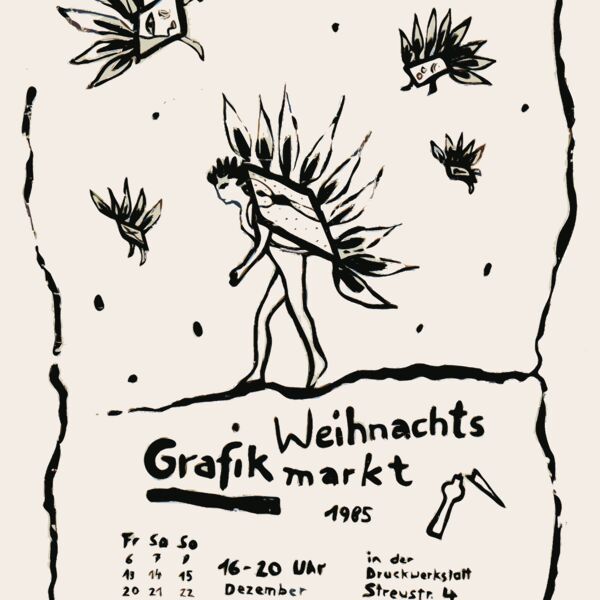 Weihnachts
Grafik markt
1985
Fr Sa So
6 7 8
13 14 15
20 21 22
16-20 Uhr
Dezember
in der
Druckwerkstatt
Streustr. 4